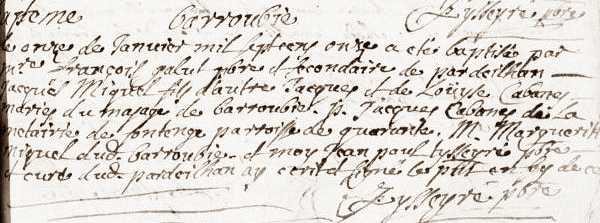 apteme barroubie Tysseyré pbre
le onze de Janvier mil sept cens onze a eté baptisé par
mre François galut pbre et secondaire de pardeilhan
Jacques Miquel fils d'autre Jacques et de Louyse Cabanes
maries du masage de barroubie. p. Jacques Cabanes de la
metairie de fontenge parroisse de quarante. M. Marguerite
miquel dud. barroubie. et moy Jean paul tysseyré pbre
et curé dud. pardeilhan ay ecrit et signé le pnt en foy de ce
Tysseyré pbre